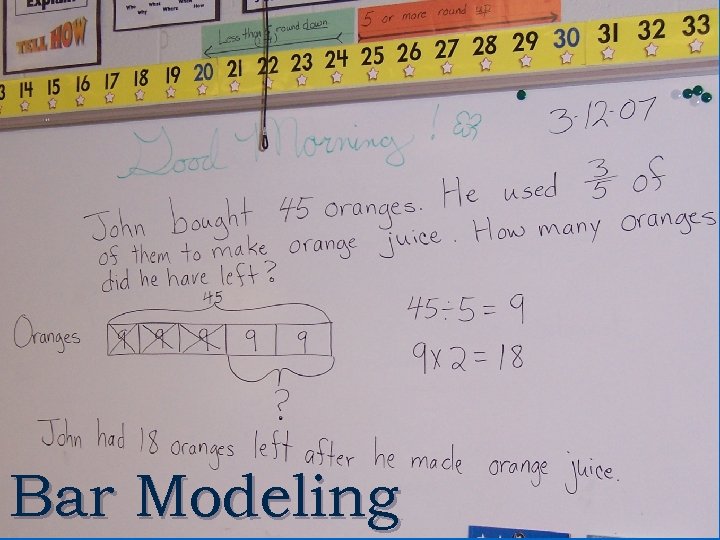 Explain
Who What When
Why Where How
TELL HOW
Less than 5 round down
5 or more round up
3 14 15 16 17 18 19 20 21 22 23 24 25 26 27 28 29 30 31 32 33
Good Morning!
3-12-07
John bought 45 oranges. He used 3/5 of
of them to make orange juice. How many oranges
did he have left?
45
Oranges 9 9 9 9 9
?
45÷5=9
9x2=18
John had 18 oranges left after he made orange juice.
Bar Modeling